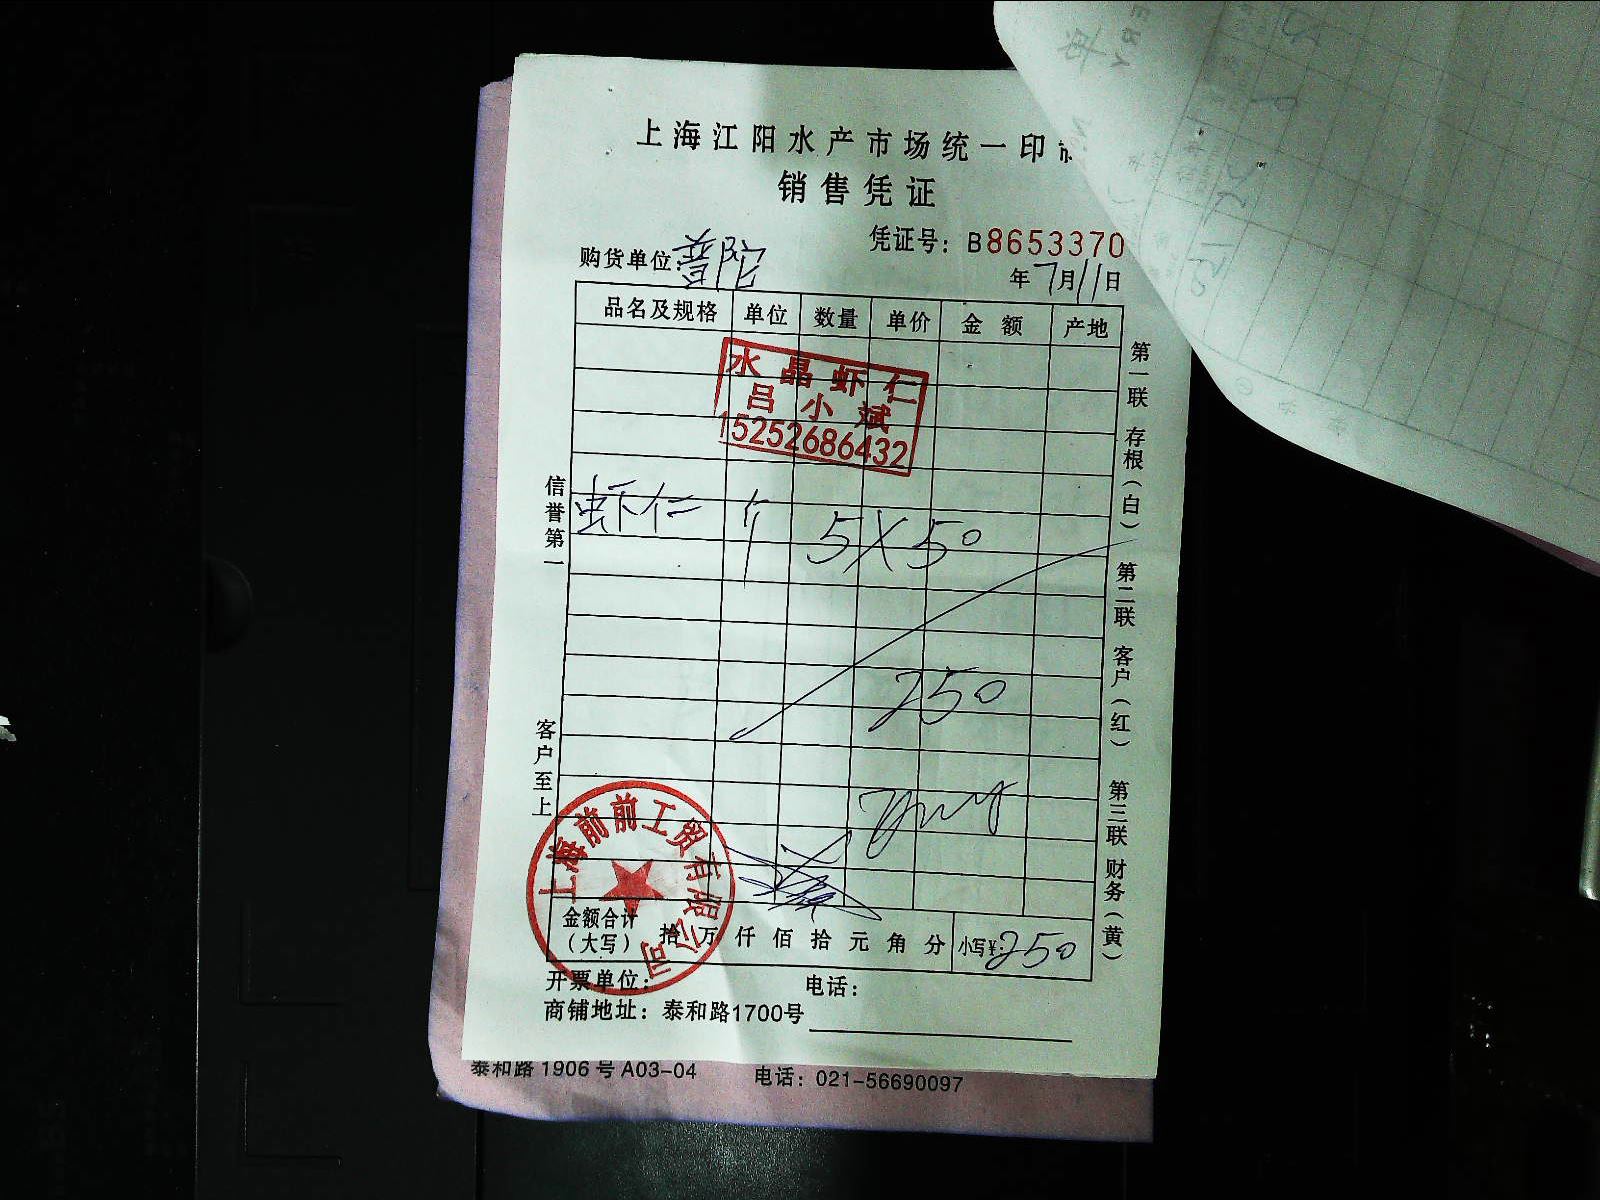 上海江阳水产市场统一印
销售凭证
凭证号：B8653370
购货单位：普陀
年7月11日
品名及规格 单位 数量 单价 金额 产地
水晶虾仁
吕小斌
15252686432
虾仁 5X50
250
信誉第一
客户至上
第一联 存根（白） 第二联 客户（红） 第三联 财务（黄）
上海前前工贸有限公司
金额合计（大写） 拾 万 仟 佰 拾 元 角 分 小写¥：250
开票单位： 电话：
商铺地址：泰和路1700号
泰和路 1906 号 A03-04 电话：021-56690097